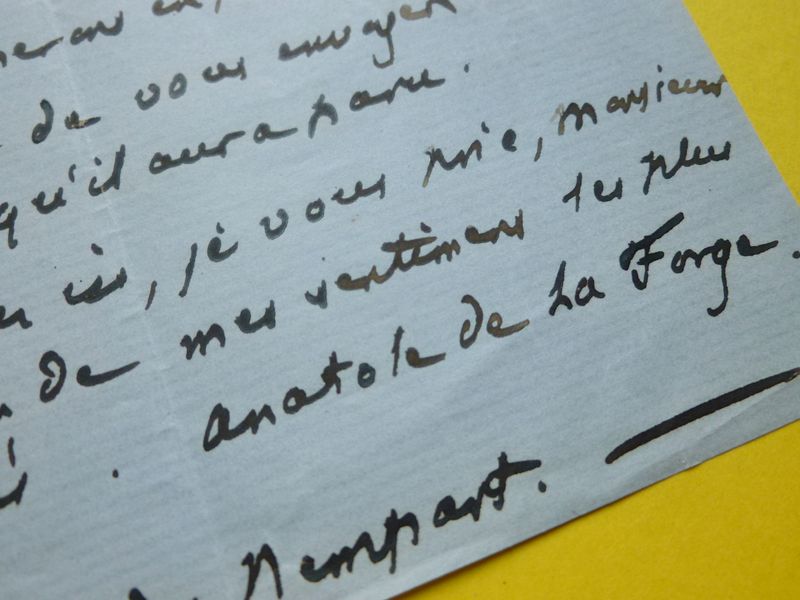 de vous envoyer
qu'il aura paru.
ici, je vous prie, monsieur
de mes sentimens les plus
anatole de La Forge.
Rempart.